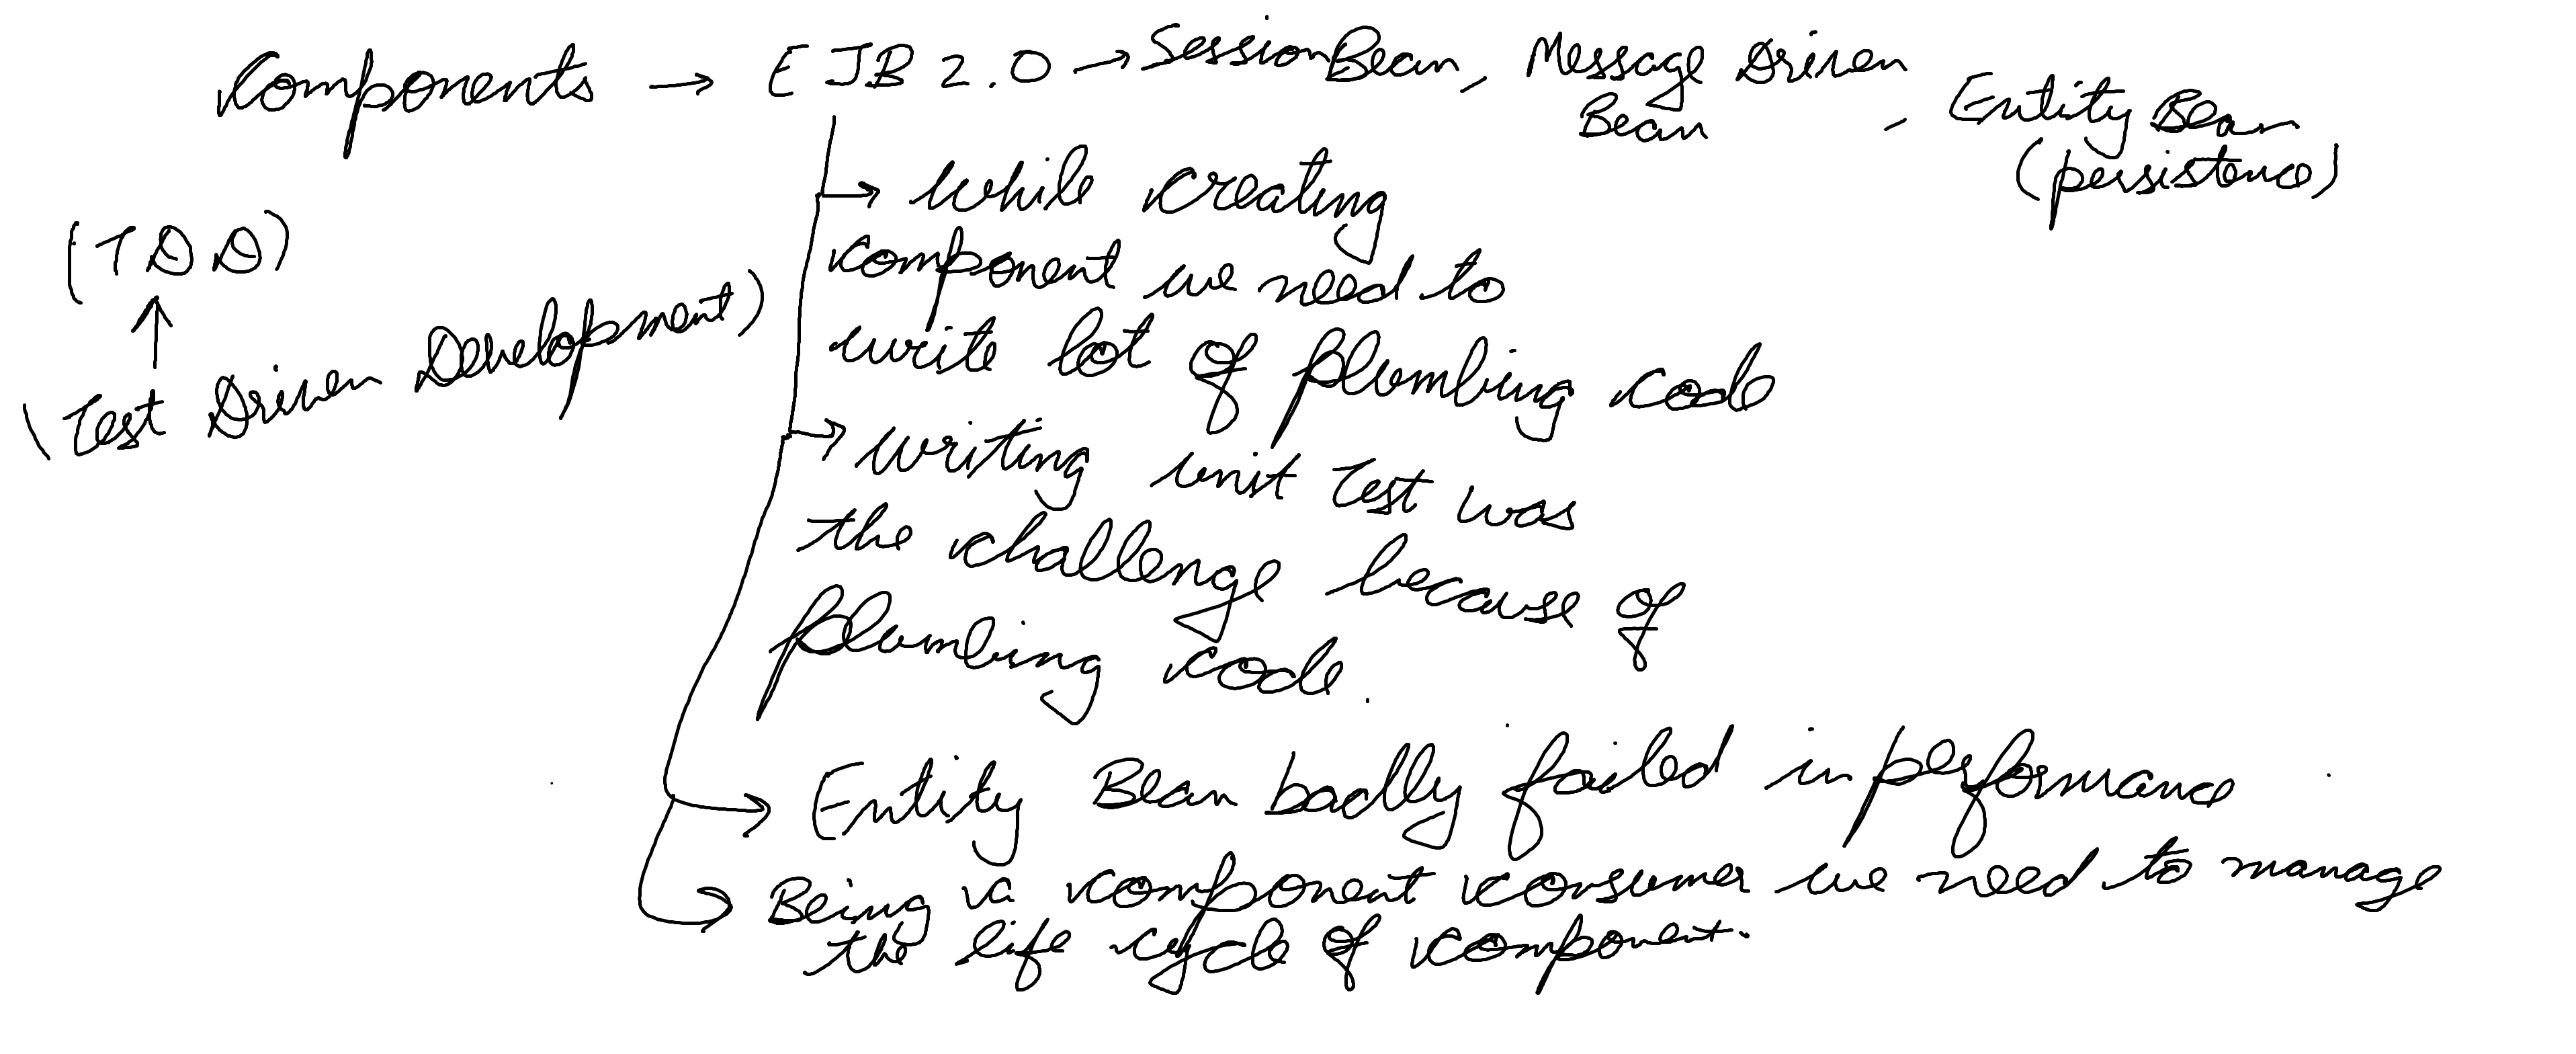 Components → EJB 2.0 → SessionBean, Message Driven Bean, Entity Bean (persistence)
→ while creating
component we need to
write lot of plumbing code
→ writing unit test was
the challenge because of
plumbing code.
→ Entity Bean badly failed in performance
→ Being a component consumer we need to manage
the life cycle of component.
(TDD)
↑
(Test Driven Development)